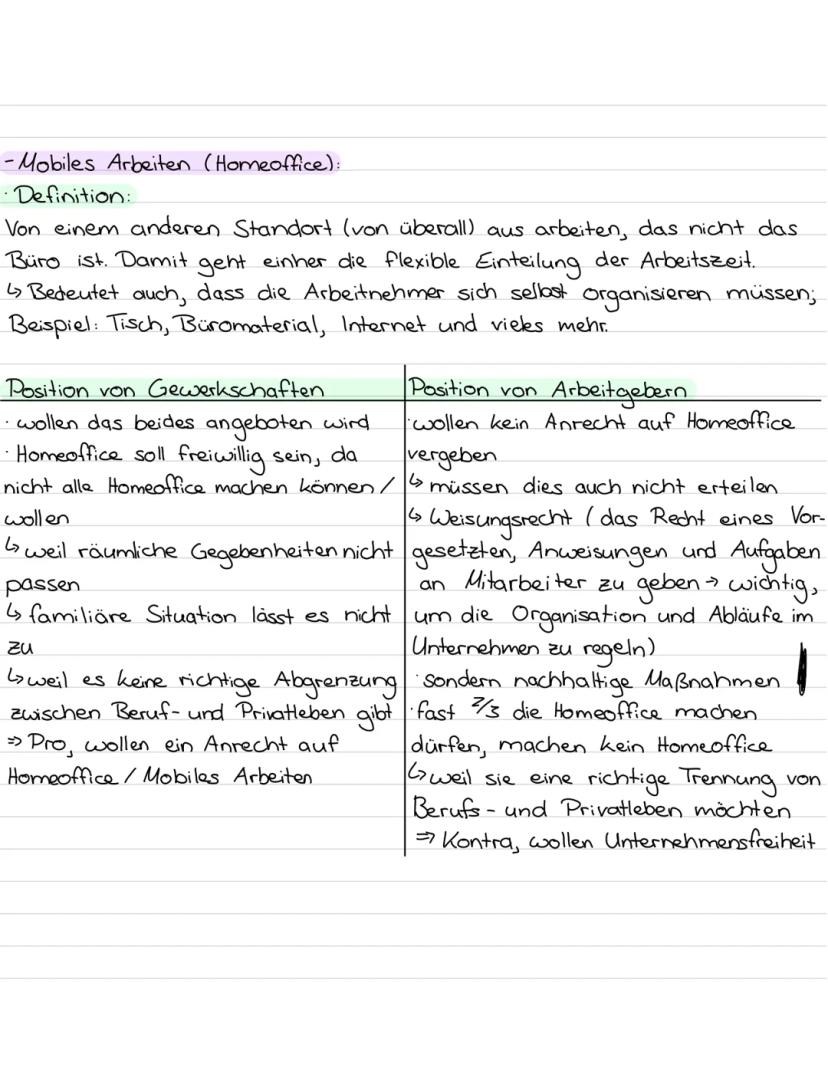 - Mobiles Arbeiten (Homeoffice):
· Definition:
Von einem anderen Standort (von überall) aus arbeiten, das nicht das
Büro ist. Damit geht einher die flexible Einteilung der Arbeitszeit.
↳ Bedeutet auch, dass die Arbeitnehmer sich selbst organisieren müssen;
Beispiel: Tisch, Büromaterial, Internet und vieles mehr.
Position von Gewerkschaften
· wollen das beides angeboten wird
· Homeoffice soll freiwillig sein, da
nicht alle Homeoffice machen können /
wollen
↳ weil räumliche Gegebenheiten nicht
passen
↳ familiäre Situation lässt es nicht
zu
↳ weil es keine richtige Abgrenzung
zwischen Beruf- und Privatleben gibt
⇒ Pro, wollen ein Anrecht auf
Homeoffice / Mobiles Arbeiten
Position von Arbeitgebern
· wollen kein Anrecht auf Homeoffice
vergeben
↳ müssen dies auch nicht erteilen
↳ Weisungsrecht (das Recht eines Vor-
gesetzten, Anweisungen und Aufgaben
an Mitarbeiter zu geben → wichtig,
um die Organisation und Abläufe im
Unternehmen zu regeln)
· sondern nachhaltige Maßnahmen
· fast 2/3 die Homeoffice machen
dürfen, machen kein Homeoffice
↳ weil sie eine richtige Trennung von
Berufs- und Privatleben möchten
⇒ Kontra, wollen Unternehmensfreiheit